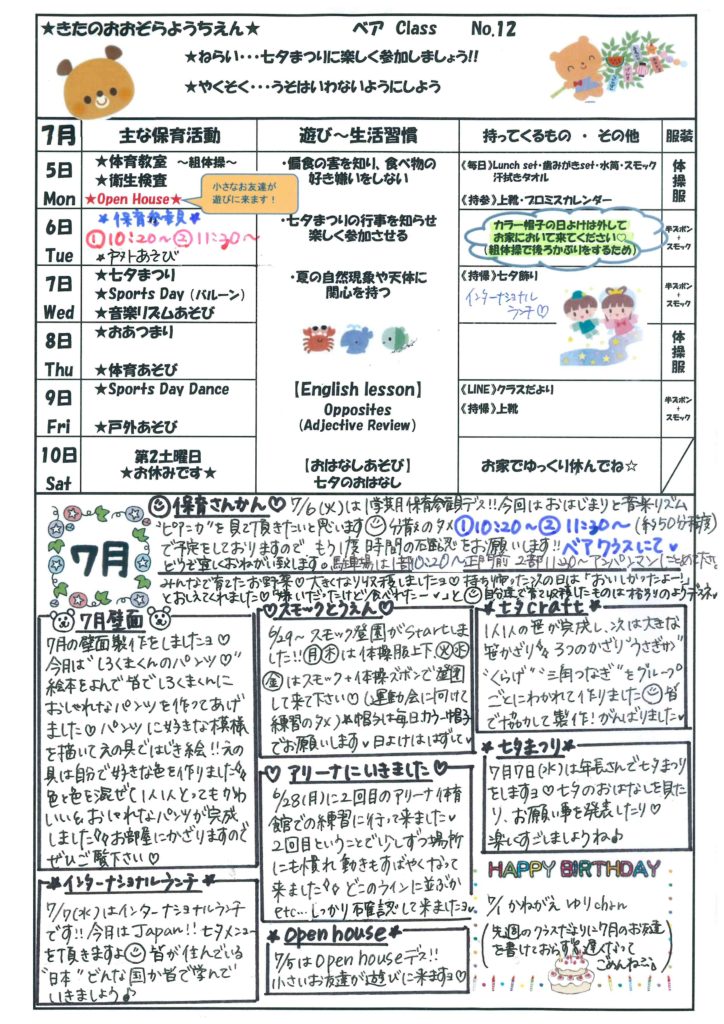 ★きたのおおぞらようちえん★ ベア Class No.12
★ねらい・・・七夕まつりに楽しく参加しましょう!!
★やくそく・・・うそはいわないようにしよう
7月 主な保育活動 遊び～生活習慣 持ってくるもの ・ その他 服装
5日 Mon
★体育教室 ～組体操～
★衛生検査
★Open House★
小さなお友達が
遊びに来ます！
・偏食の害を知り、食べ物の
好き嫌いをしない
《毎日》Lunch set・歯みがきset・水筒・スモック
汗拭きタオル
《持参》上靴・プロミスカレンダー
体操服
6日 Tue
★保育参観★
①10:20～②11:20～
・七夕まつりの行事を知らせ
楽しく参加させる
カラー帽子の日よけは外して
お家において来てください♡
(組体操で後ろかぶりをするため)
半ズボン
+
スモック
7日 Wed
★七夕まつり
★Sports Day (バルーン)
★音楽リズムあそび
・夏の自然現象や天体に
関心を持つ
《持帰》七夕飾り
インターナショナル
ランチ♡
半ズボン
+
スモック
8日 Thu
★おあつまり
★体育あそび
体操服
9日 Fri
★Sports Day Dance
★戸外あそび
【English lesson】
Opposites
(Adjective Review)
《LINE》クラスだより
《持帰》上靴
半ズボン
+
スモック
10日 Sat
第2土曜日
★お休みです★
【おはなしあそび】
七夕のおはなし
お家でゆっくり休んでね☆
7月
保育さんかん♡ 7/6(火)は1学期保育参観デス!!今回はおはじまりと音楽リズム
"ピアニカ"を見て頂きたいと思います 分散のタメ①10:20～②11:20～(約50分程度)
で予定をしておりますので、もう1度時間の確認をお願いします!! ベアクラスにて♥
どうぞ宜しくおねがい致します。
みんなで育てたお野菜♡大きくなり収穫しましたヨ♡持ち帰った次の日は「おいしかったよー!」
とおしえてくれました♡
7月壁面
7月の壁面製作をしましたヨ♡
今月は"しろくまくんのパンツ♡"
絵本をよんで皆でしろくまくんに
おしゃれなパンツを作ってあげ
ました♡パンツに好きな模様
を描いてえの具ではじき絵!!えの
具は自分で好きな色を作りました
色と色を混ぜて1人1人とってもかわ
いい&おしゃれなパンツが完成
しました お部屋にかざりますので
ぜひご覧下さい♡
♡スモックとうえん♡
6/29～スモック登園がStartしま
した!!月木は体操服上下、火水
金はスモック+体操ズボンで登園
して来て下さい♡(運動会に向けて
練習のタメ)★帽子は毎日カラー帽子
でお願いします♥日よけははずして♥
★七夕craft★
1人1人の笹が完成し、次は大きな
笹かざり 3つのかざり"うさぎ
"くらげ" "三角つなぎ"をグループ
ごとにわかれて作りました 皆
で協力して製作!がんばりました♥
♡アリーナにいきました♡
6/28(月)に2回目のアリーナ体育
館での練習に行って来ました♥
2回目ということで少しずつ場所
にも慣れ動きもすばやくなって
来ました どこのラインに並ぶか
etc…しっかり確認して来ましたヨ♥
★七夕まつり★
7月7日(水)は年長さんで七夕まつり
をしますヨ♡七夕のおはなしを見た
り、お願い事を発表したり♡
楽しくすごしましょうね♪
★インターナショナルランチ★
7/7(水)はインターナショナルランチ
です!!今月はJapan!!七夕メニュー
を頂きますよ 皆が住んでいる
"日本"どんな国か皆で学んで
いきましょう♪
★open house★
7/5はopen houseデス!!
小さいお友達が遊びに来ますヨ♡
HAPPY BIRTHDAY
7/1 かねがえ ゆりchan
(先週のクラスだよりに7月のお友達
を書けておらず遅くなって
ごめんねっ。)